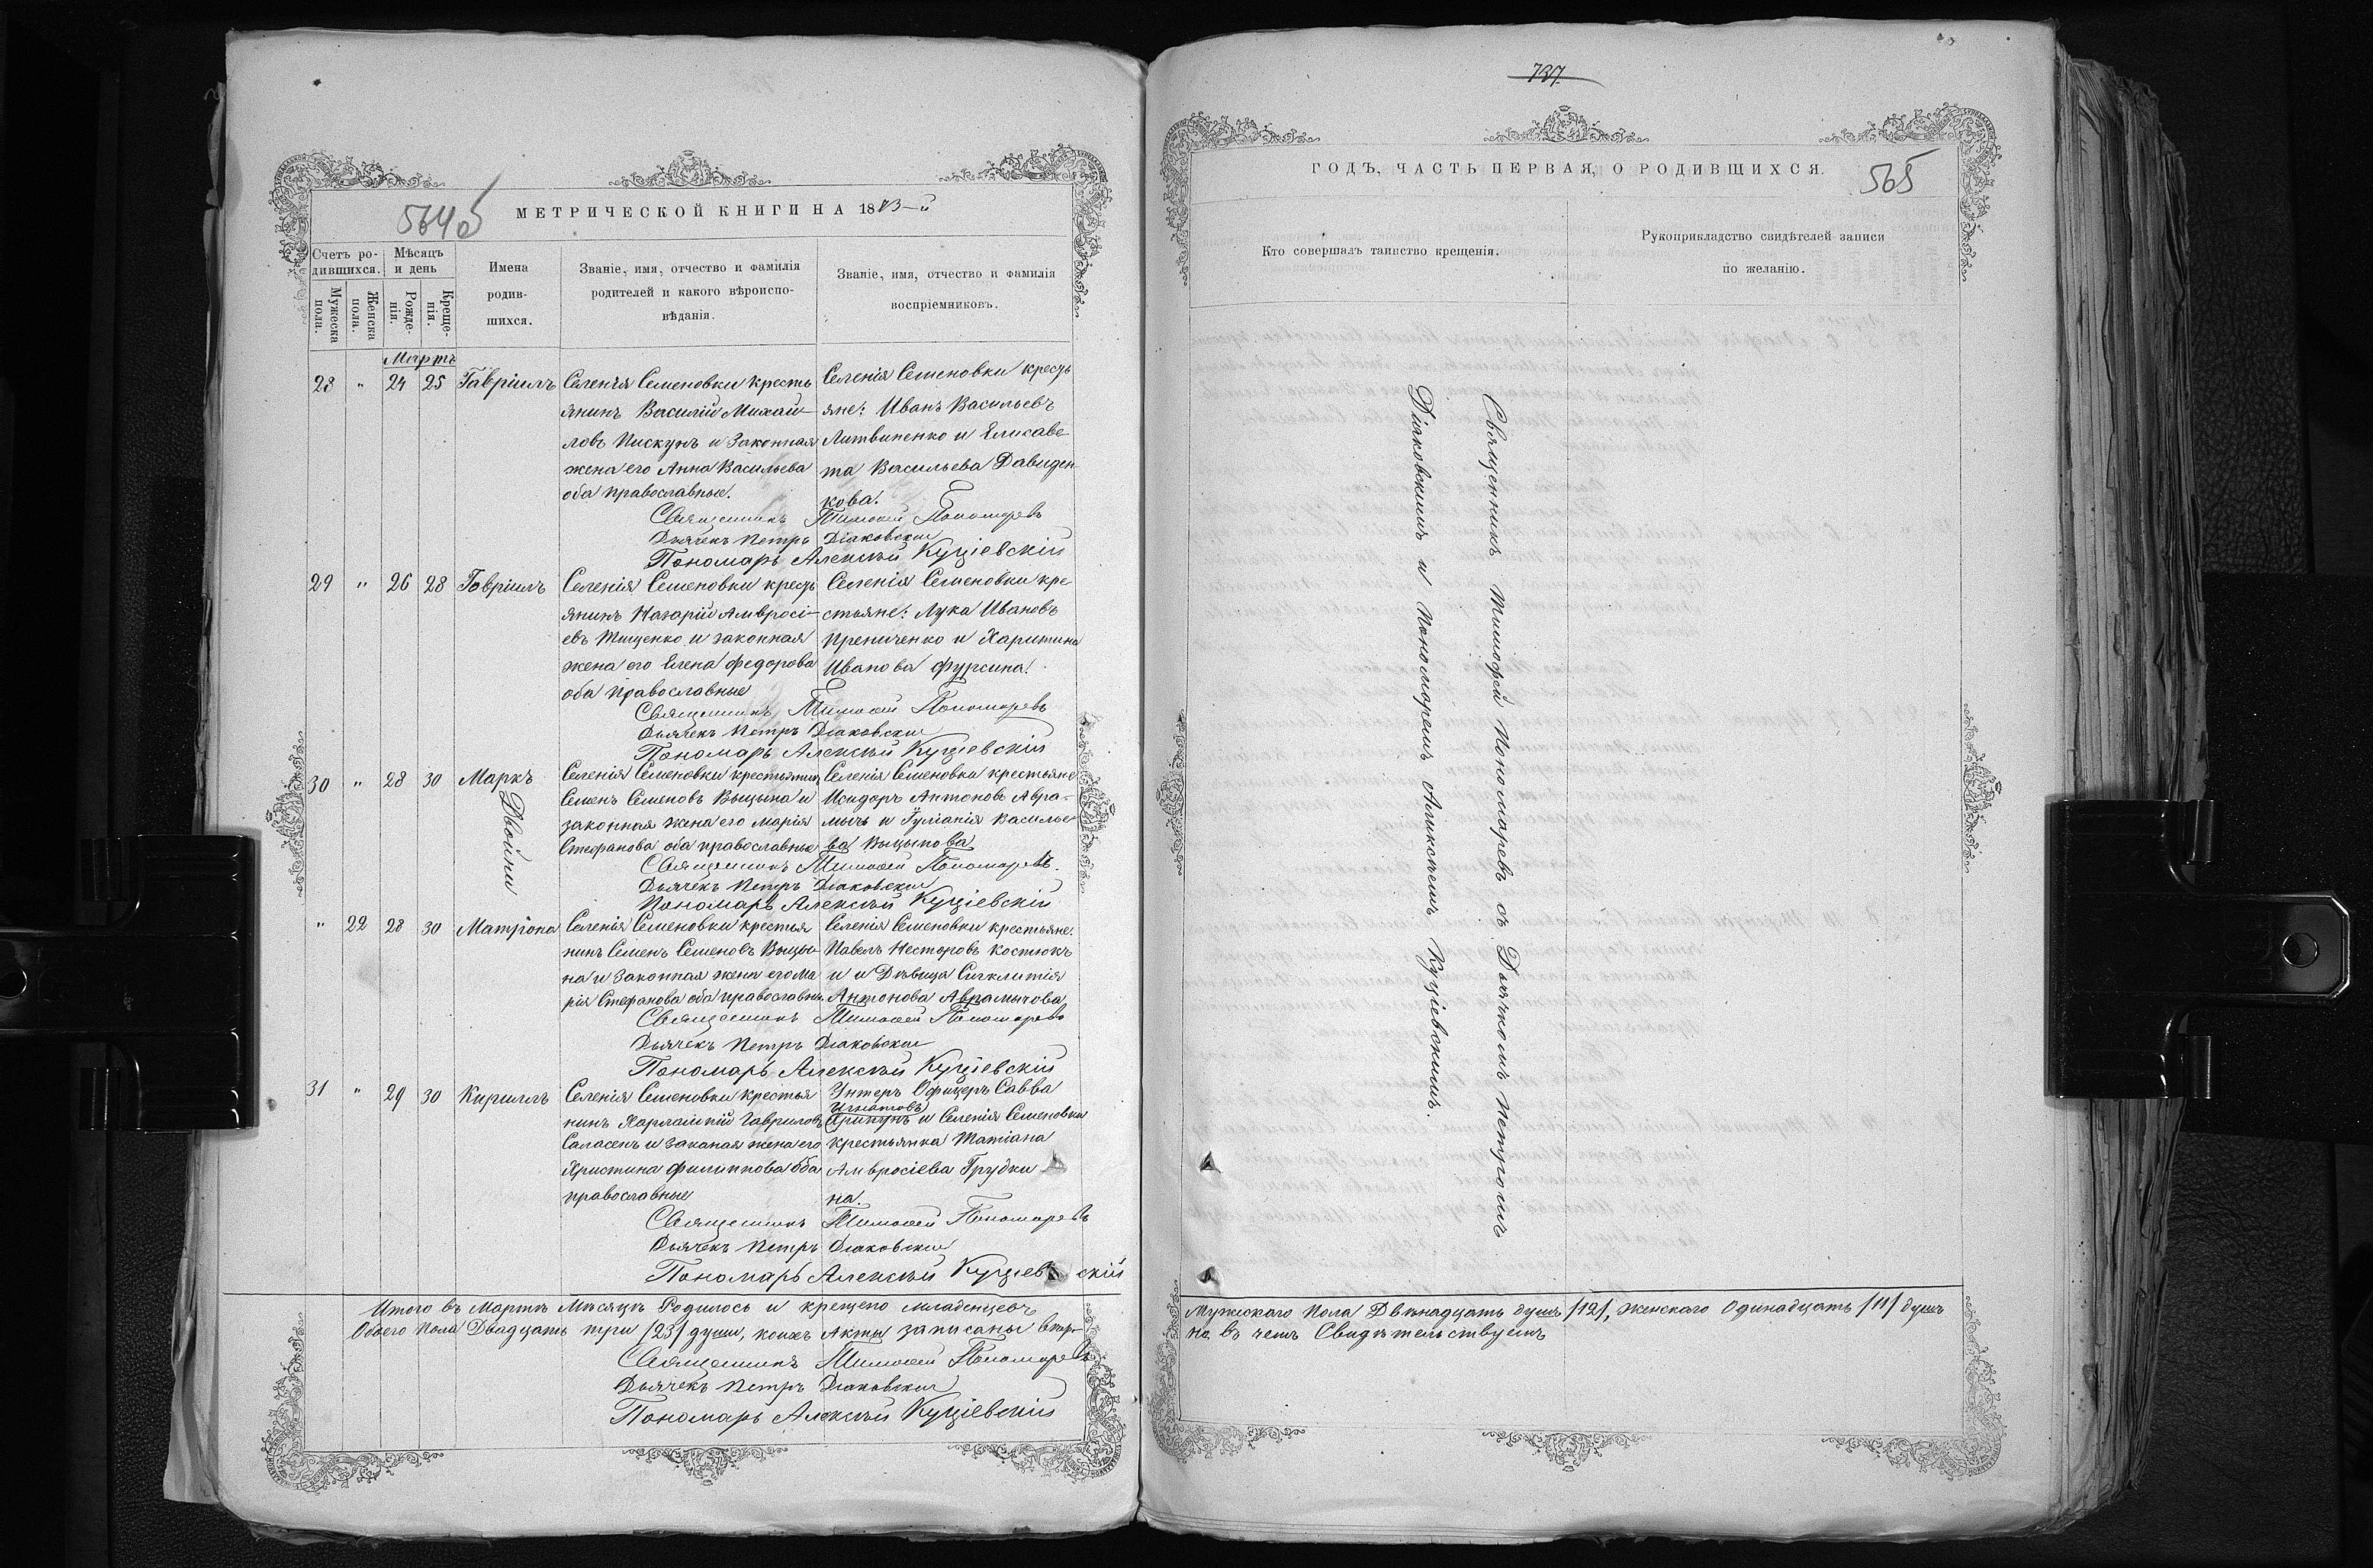 564б
МЕТРИЧЕСКОЙ КНИГИ НА 1883-й
Счетъ ро-
дившихся.
Мужеска пола.
Женска пола.
Мѣсяцъ
и день
Рожде-
нія.
Креще-
нія.
Имена
родив-
шихся.
Званіе, имя, отчество и фамилія
родителей и какого вѣроиспо-
вѣданія.
Званіе, имя, отчество и фамилія
воспріемниковъ.
Мартъ
28 " 24 25 Гавріилъ
Селенія Семеновки кресть
янинъ Василій Михаи-
ловъ Пискунъ и Законная
жена его Анна Васильева
оба православные.
Селенія Семеновки кресть
яне: Иванъ Васильевъ
Литвиненко и Елисаве
та Васильева Давиден-
кова.
Священникъ Тимофей Пономаревъ
Дьячекъ Петръ Діаковскій
Пономарь Алексѣй Куціевскій
29 " 26 28 Гавріилъ
Селенія Семеновки кресть
янинъ Назарій Амвросі-
евъ Тищенко и законная
жена его Елена Федорова
оба православные
Селенія Семеновки кре
стьяне: Лука Ивановъ
и Харитина
Иванова Фурсина.
Священникъ Тимофей Пономаревъ
Дьячекъ Петръ Діаковскій
Пономарь Алексѣй Куціевскій
30 " 28 30 Маркъ
Двойни
Селенія Семеновки крестьянин
Семенъ Семеновъ Выцына и
законная жена его Марія
Стефанова оба православные
Селенія Семеновки крестьяне
Исидоръ Антоновъ Авра-
мычъ и Іуліанія Василье
ва Выцынова
Священникъ Тимофей Пономаревъ.
Дьячекъ Петръ Діаковскій
Пономарь Алексѣй Куціевскій
" 22 28 30 Матрона
Селенія Семеновки крестья
нинъ Семенъ Семеновъ Выцы-
на и Законная жена его Ма
рія Стефанова оба православны.
Селенія Семеновки крестьяне:
Павелъ Несторовъ Костюкъ
и Дѣвица Сигклитія
Антонова Аврамычова
Священникъ Тимофей Пономаревъ
Дьячекъ Петръ Діаковскій
Пономарь Алексѣй Куціевскій
31 " 29 30 Кириллъ
Селенія Семеновки крестья
нинъ Харлампій Гавриловъ
и законая жена его
Христина Филиппова оба
православные
Унтеръ Офицеръ Савва
Игнатовъ
и Селенія Семеновки
крестьянка Татіана
Амвросіева Грудки
на.
Священникъ Тимофей Пономаревъ
Дьячекъ Петръ Діаковскій
Пономарь Алексѣй Куціевскій
Итого въ Мартѣ Мѣсяцѣ Родилось и крещено младенцевъ
Обоего пола Двадцать три /23/ души, коихъ Акты записаны вѣр-
Священникъ Тимофей Пономаревъ
Дьячекъ Петръ Діаковскій
Пономарь Алексѣй Куціевскій
737
565
ГОДЪ, ЧАСТЬ ПЕРВАЯ, О РОДИВШИХСЯ.
Кто совершалъ таинство крещенія.
Рукоприкладство свидѣтелей записи
по желанію.
Священникъ Тимофей Пономаревъ съ Дьячкомъ Петромъ
Діаковскимъ и Пономаремъ Алексѣемъ Куціевскимъ.
Мужескаго Пола Двѣнадцать душъ /12/, Женскаго Одинадцать /11/ душъ
но. въ чемъ Свидѣтельствуемъ